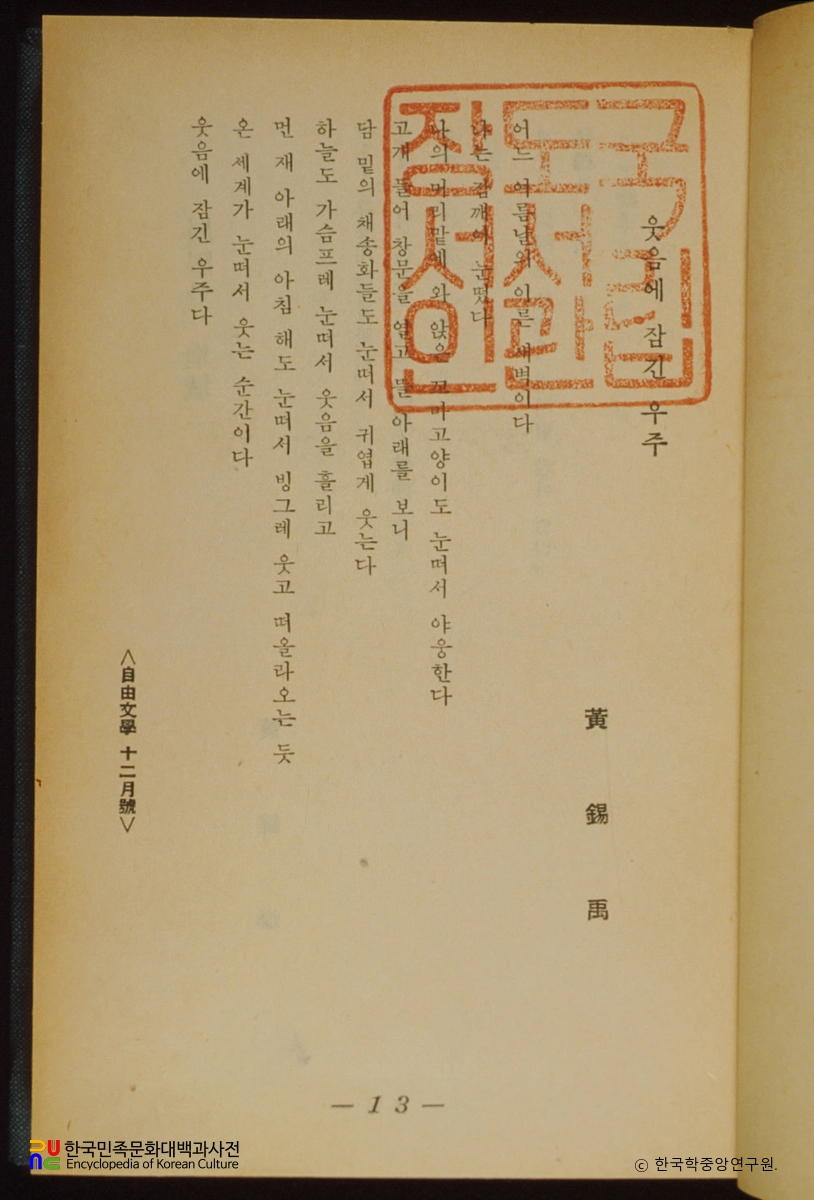 웃음에 잠긴 우주
黃錫禹
어느 여름날의 이른 새벽이다
나는 잠깨여 눈떴다
나의 머리맡에 와 앉은 꼬마고양이도 눈떠서 야웅한다
고개 들어 창문을 열고 뜰 아래를 보니
담 밑의 채송화들도 눈떠서 귀엽게 웃는다
하늘도 가슴프레 눈떠서 웃음을 흘리고
먼 재 아래의 아침 해도 눈떠서 빙그레 웃고 떠올라오는 듯
온 세계가 눈떠서 웃는 순간이다
웃음에 잠긴 우주다
〈自由文學 十二月號〉
국립
도서관
장서인
— 13 —
한국민족문화대백과사전
Encyclopedia of Korean Culture
© 한국학중앙연구원.